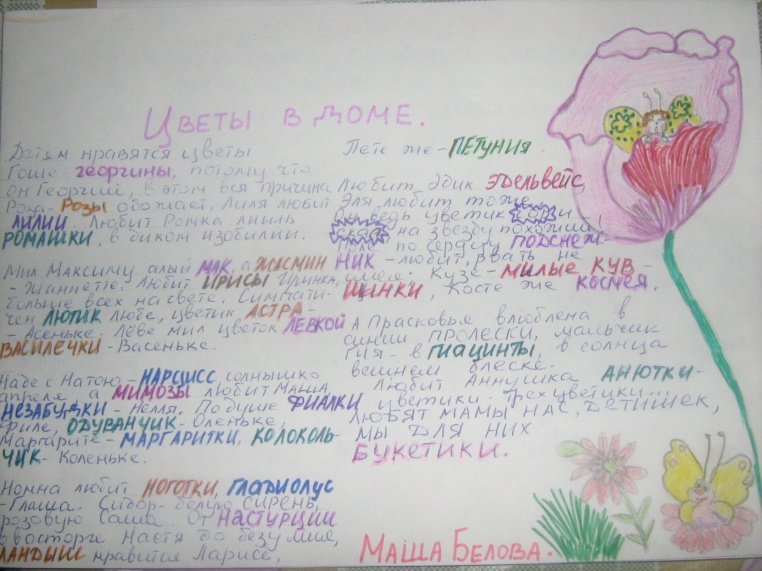 ЦВЕТЫ В ДОМЕ.
Детям нравятся цветы
Гоше георгины, потому что
он Георгий, в этом вся причина
Роза- РОЗЫ обожает, Лиля любит
ЛИЛИИ. Любит Ромка лишь
РОМАШКИ, в диком изобилии.
Мил Максиму алый МАК, а ЖАСМИН
- Жаннетте. Любит ИРИСЫ Иринка,
больше всех на свете. Симпати-
чен ЛЮТИК Любе, цветик АСТРА-
- Асеньке. Лёве мил цветок ЛЕВКОЙ
ВАСИЛЕЧКИ - Васеньке.
Наде с Натою- НАРЦИСС, солнышко
апреля, а МИМОЗЫ любит Маша,
НЕЗАБУДКИ - Нелля. По душе ФИАЛКИ
Филе, ОДУВАНЧИК- Оленьке,
Маргарите- МАРГАРИТКИ, КОЛОКОЛЬ-
ЧИК- Коленьке.
Нонна любит НОГОТКИ, ГЛАДИОЛУС
-Глаша. Сидор- белую сирень,
розовую Саша. От НАСТУРЦИИ
в восторге Настя до безумия,
ЛАНДЫШ нравится Ларисе,
Пете же- ПЕТУНИЯ.
Любит Эдик ЭДЕЛЬВЕЙС,
Эля любит тоже,
ведь цветик
на звезду похожий!
по сердцу ПОДСНЕЖ-
НИК - любит, рвать не
смеет. Кузе- МИЛЫЕ КУВ-
ШИНКИ, Косте же КОСМЕЯ.
А Прасковья влюблена в
синии ПРОЛЕСКИ, мальчик
Гия- в ГИАЦИНТЫ, в солнца
вешнем блеске.
Любит Аннушка АНЮТКИ-
цветики. Трех цветики...
ЛЮБЯТ МАМЫ НАС, ДЕТИШЕК,
МЫ ДЛЯ НИХ
БУКЕТИКИ.
МАША БЕЛОВА.